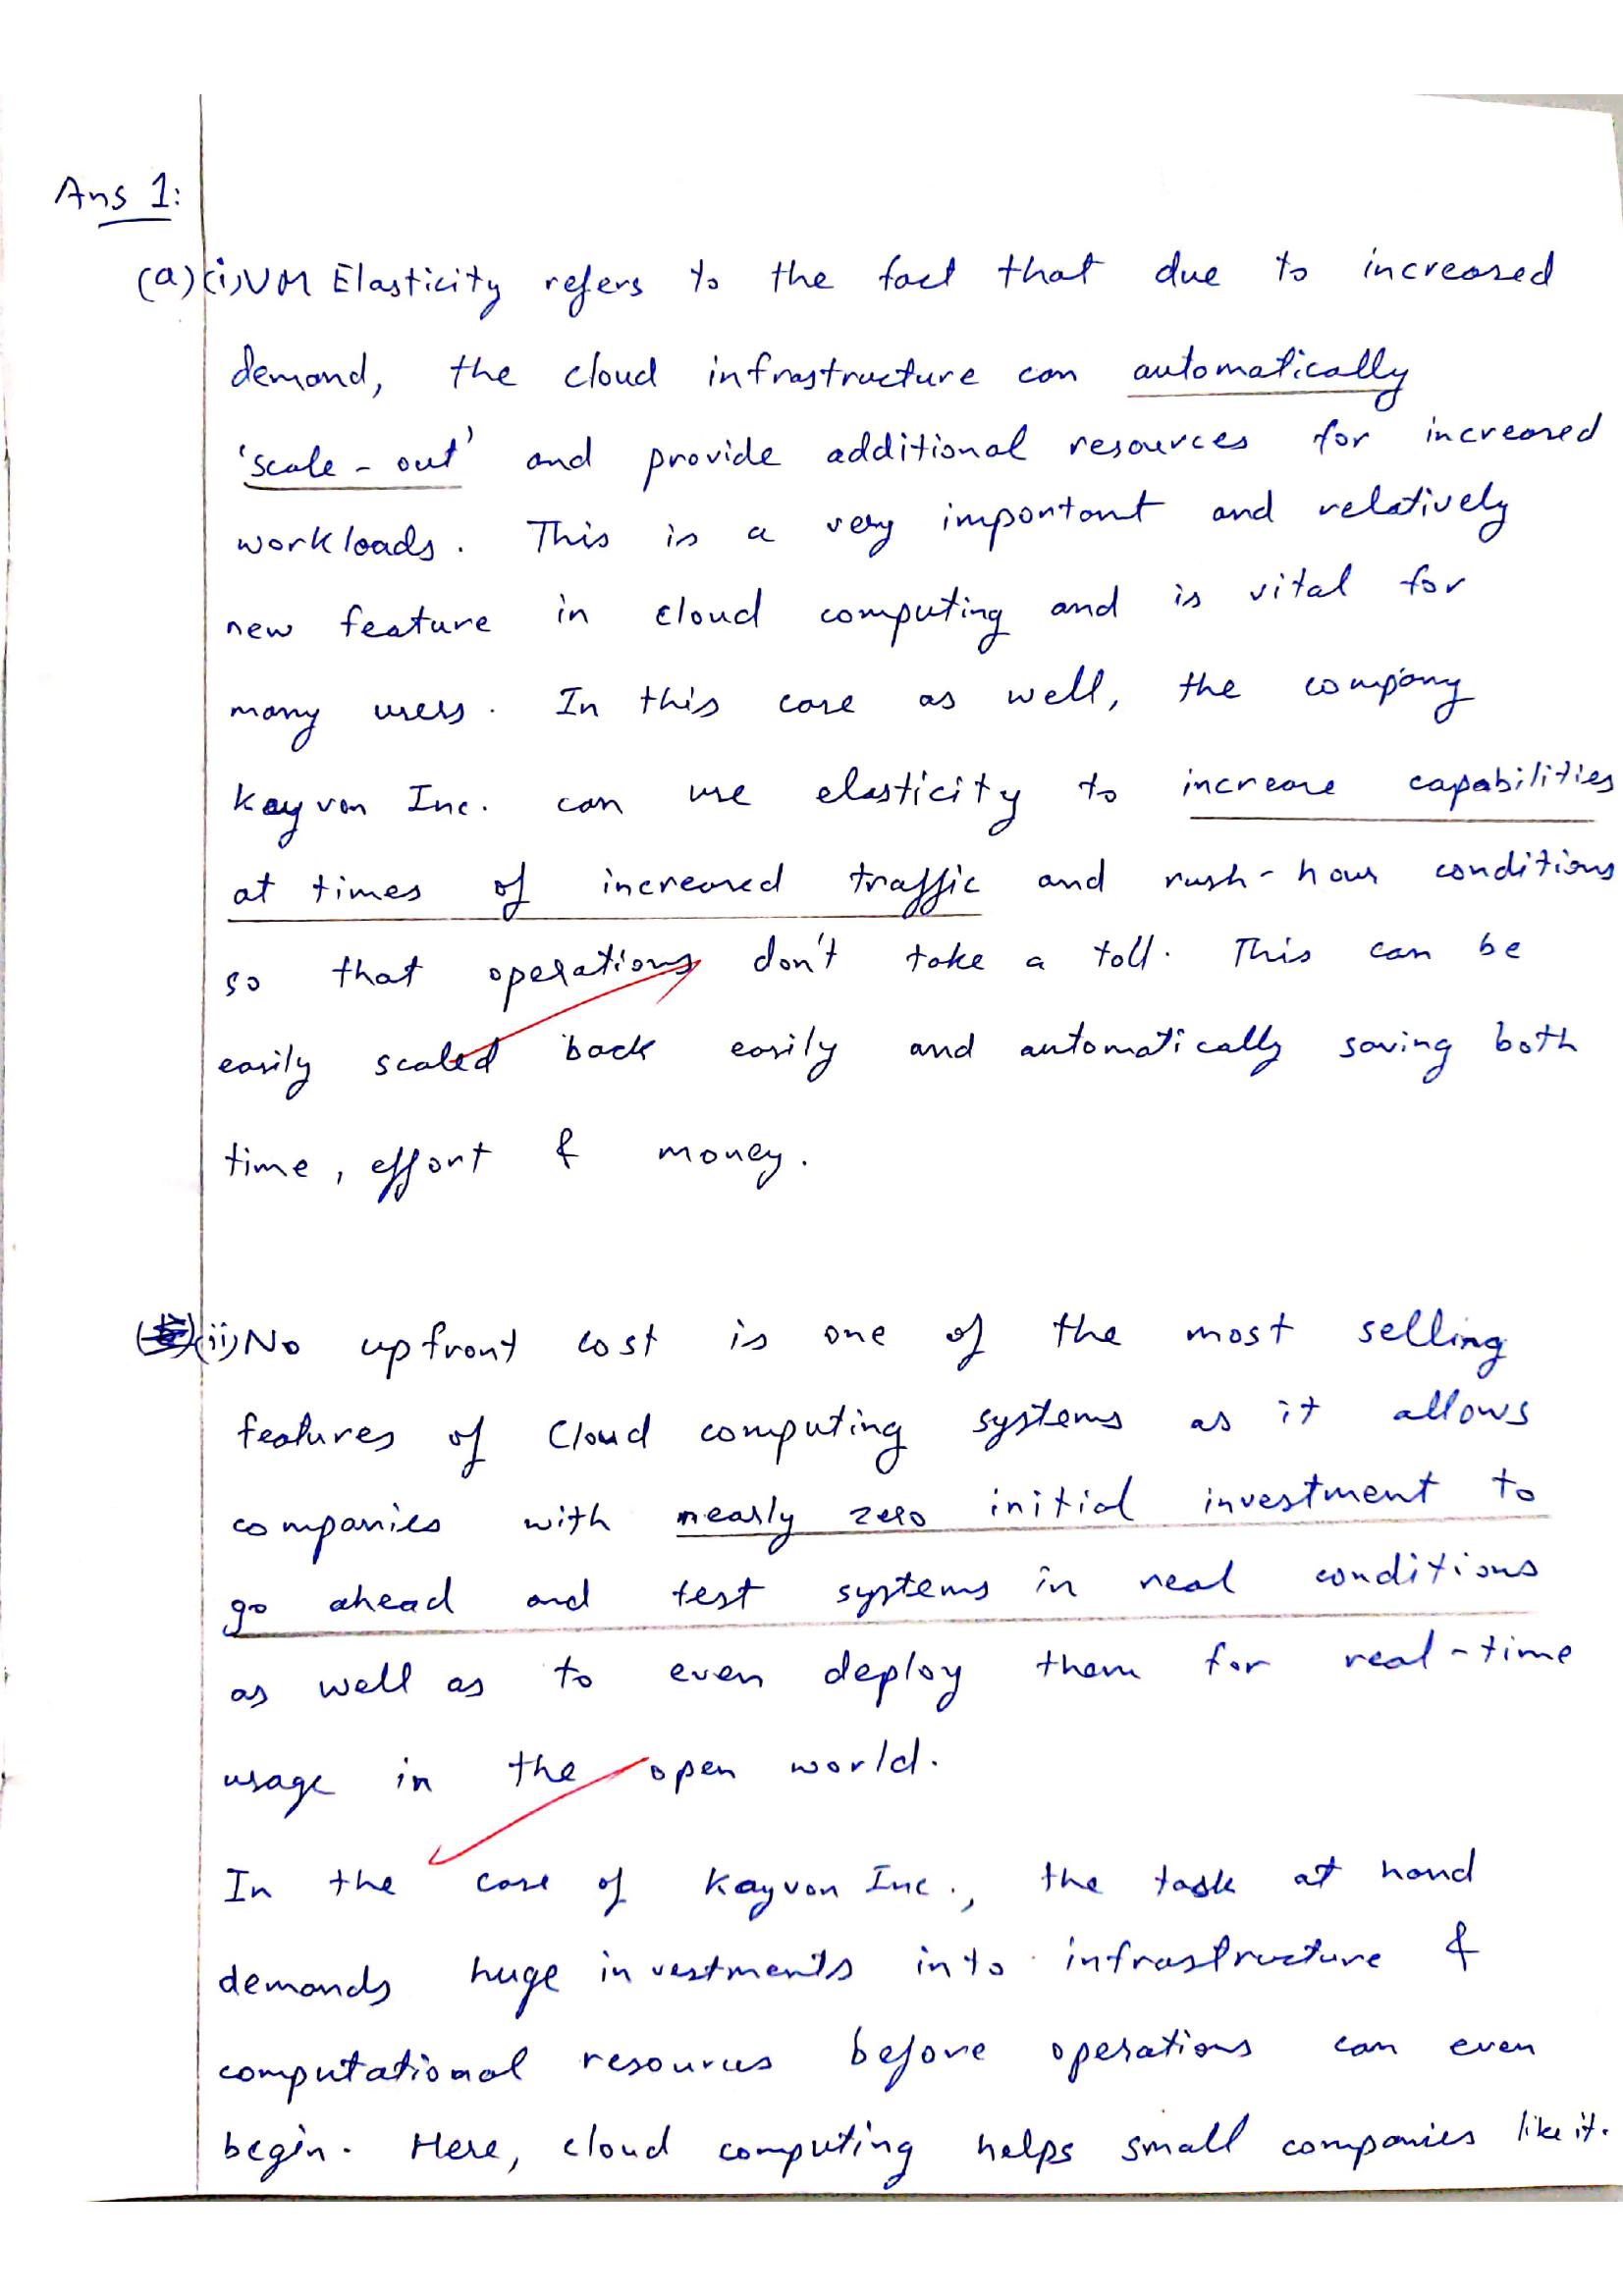 Ans 1:
(a)(i) VM Elasticity refers to the fact that due to increased
demand, the cloud infrastructure can automatically
'scale-out' and provide additional resources for increased
workloads. This is a very important and relatively
new feature in cloud computing and is vital for
many users. In this case as well, the company
Kayvon Inc. can use elasticity to increase capabilities
at times of increased traffic and rush-hour conditions
so that operations don't take a toll. This can be
easily scaled back easily and automatically saving both
time, effort & money.
(ii) No upfront cost is one of the most selling
features of Cloud computing systems as it allows
companies with nearly zero initial investment to
go ahead and test systems in real conditions
as well as to even deploy them for real-time
usage in the open world.
In the case of Kayvon Inc., the task at hand
demands huge investments into infrastructure &
computational resources before operations can even
begin. Here, cloud computing helps small companies like it.